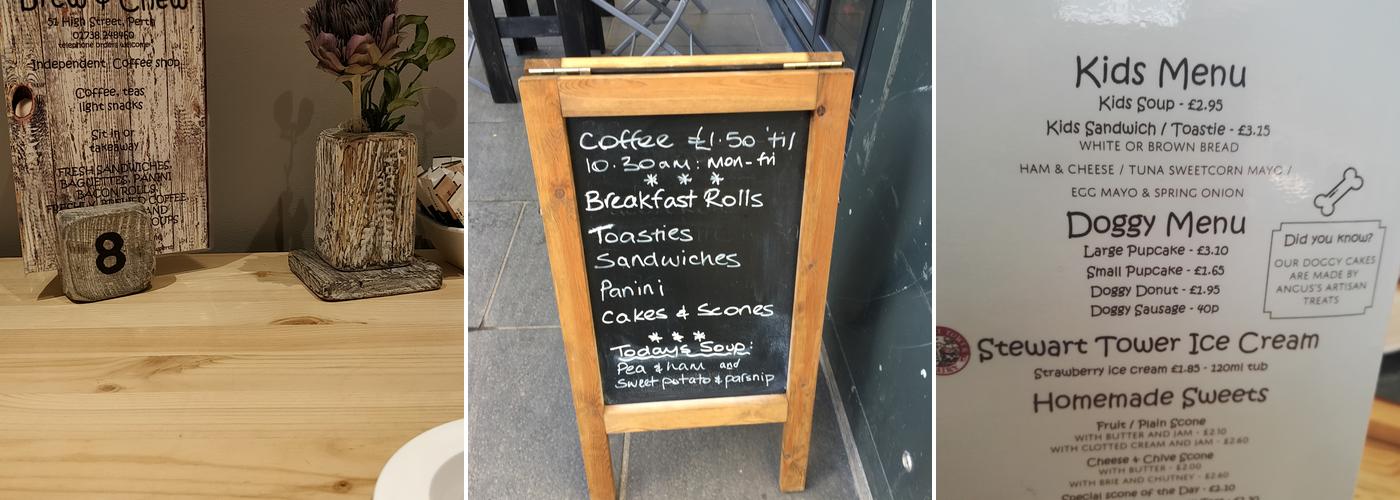 Brew & Chew
51 High Street, Perth
01738 248960
telephone orders welcome
Independent Coffee shop
Coffee, teas
light snacks
Sit in or
takeaway
FRESH SANDWICHES,
BAGUETTES, PANINI
BACON ROLLS,
COFFEE
AND
8
Coffee £1.50 'til
10.30am: Mon-fri
* * *
Breakfast Rolls
Toasties
Sandwiches
Panini
Cakes & Scones
* * *
Today's Soup:
Pea & ham and
Sweet potato & parsnip
Kids Menu
Kids Soup - £2.95
Kids Sandwich / Toastie - £3.15
WHITE OR BROWN BREAD
HAM & CHEESE / TUNA SWEETCORN MAYO /
EGG MAYO & SPRING ONION
Doggy Menu
Large Pupcake - £3.10
Small Pupcake - £1.65
Doggy Donut - £1.95
Doggy Sausage - 40p
Did you know?
OUR DOGGY CAKES
ARE MADE BY
ANGUS'S ARTISAN
TREATS
Stewart Tower Ice Cream
Strawberry ice cream £1.85 - 120ml tub
Homemade Sweets
Fruit / Plain Scone
WITH BUTTER AND JAM - £2.10
WITH CLOTTED CREAM AND JAM - £2.60
Cheese & Chive Scone
WITH BUTTER - £2.00
WITH BRIE AND CHUTNEY - £2.60
Special scone of the Day - £2.10